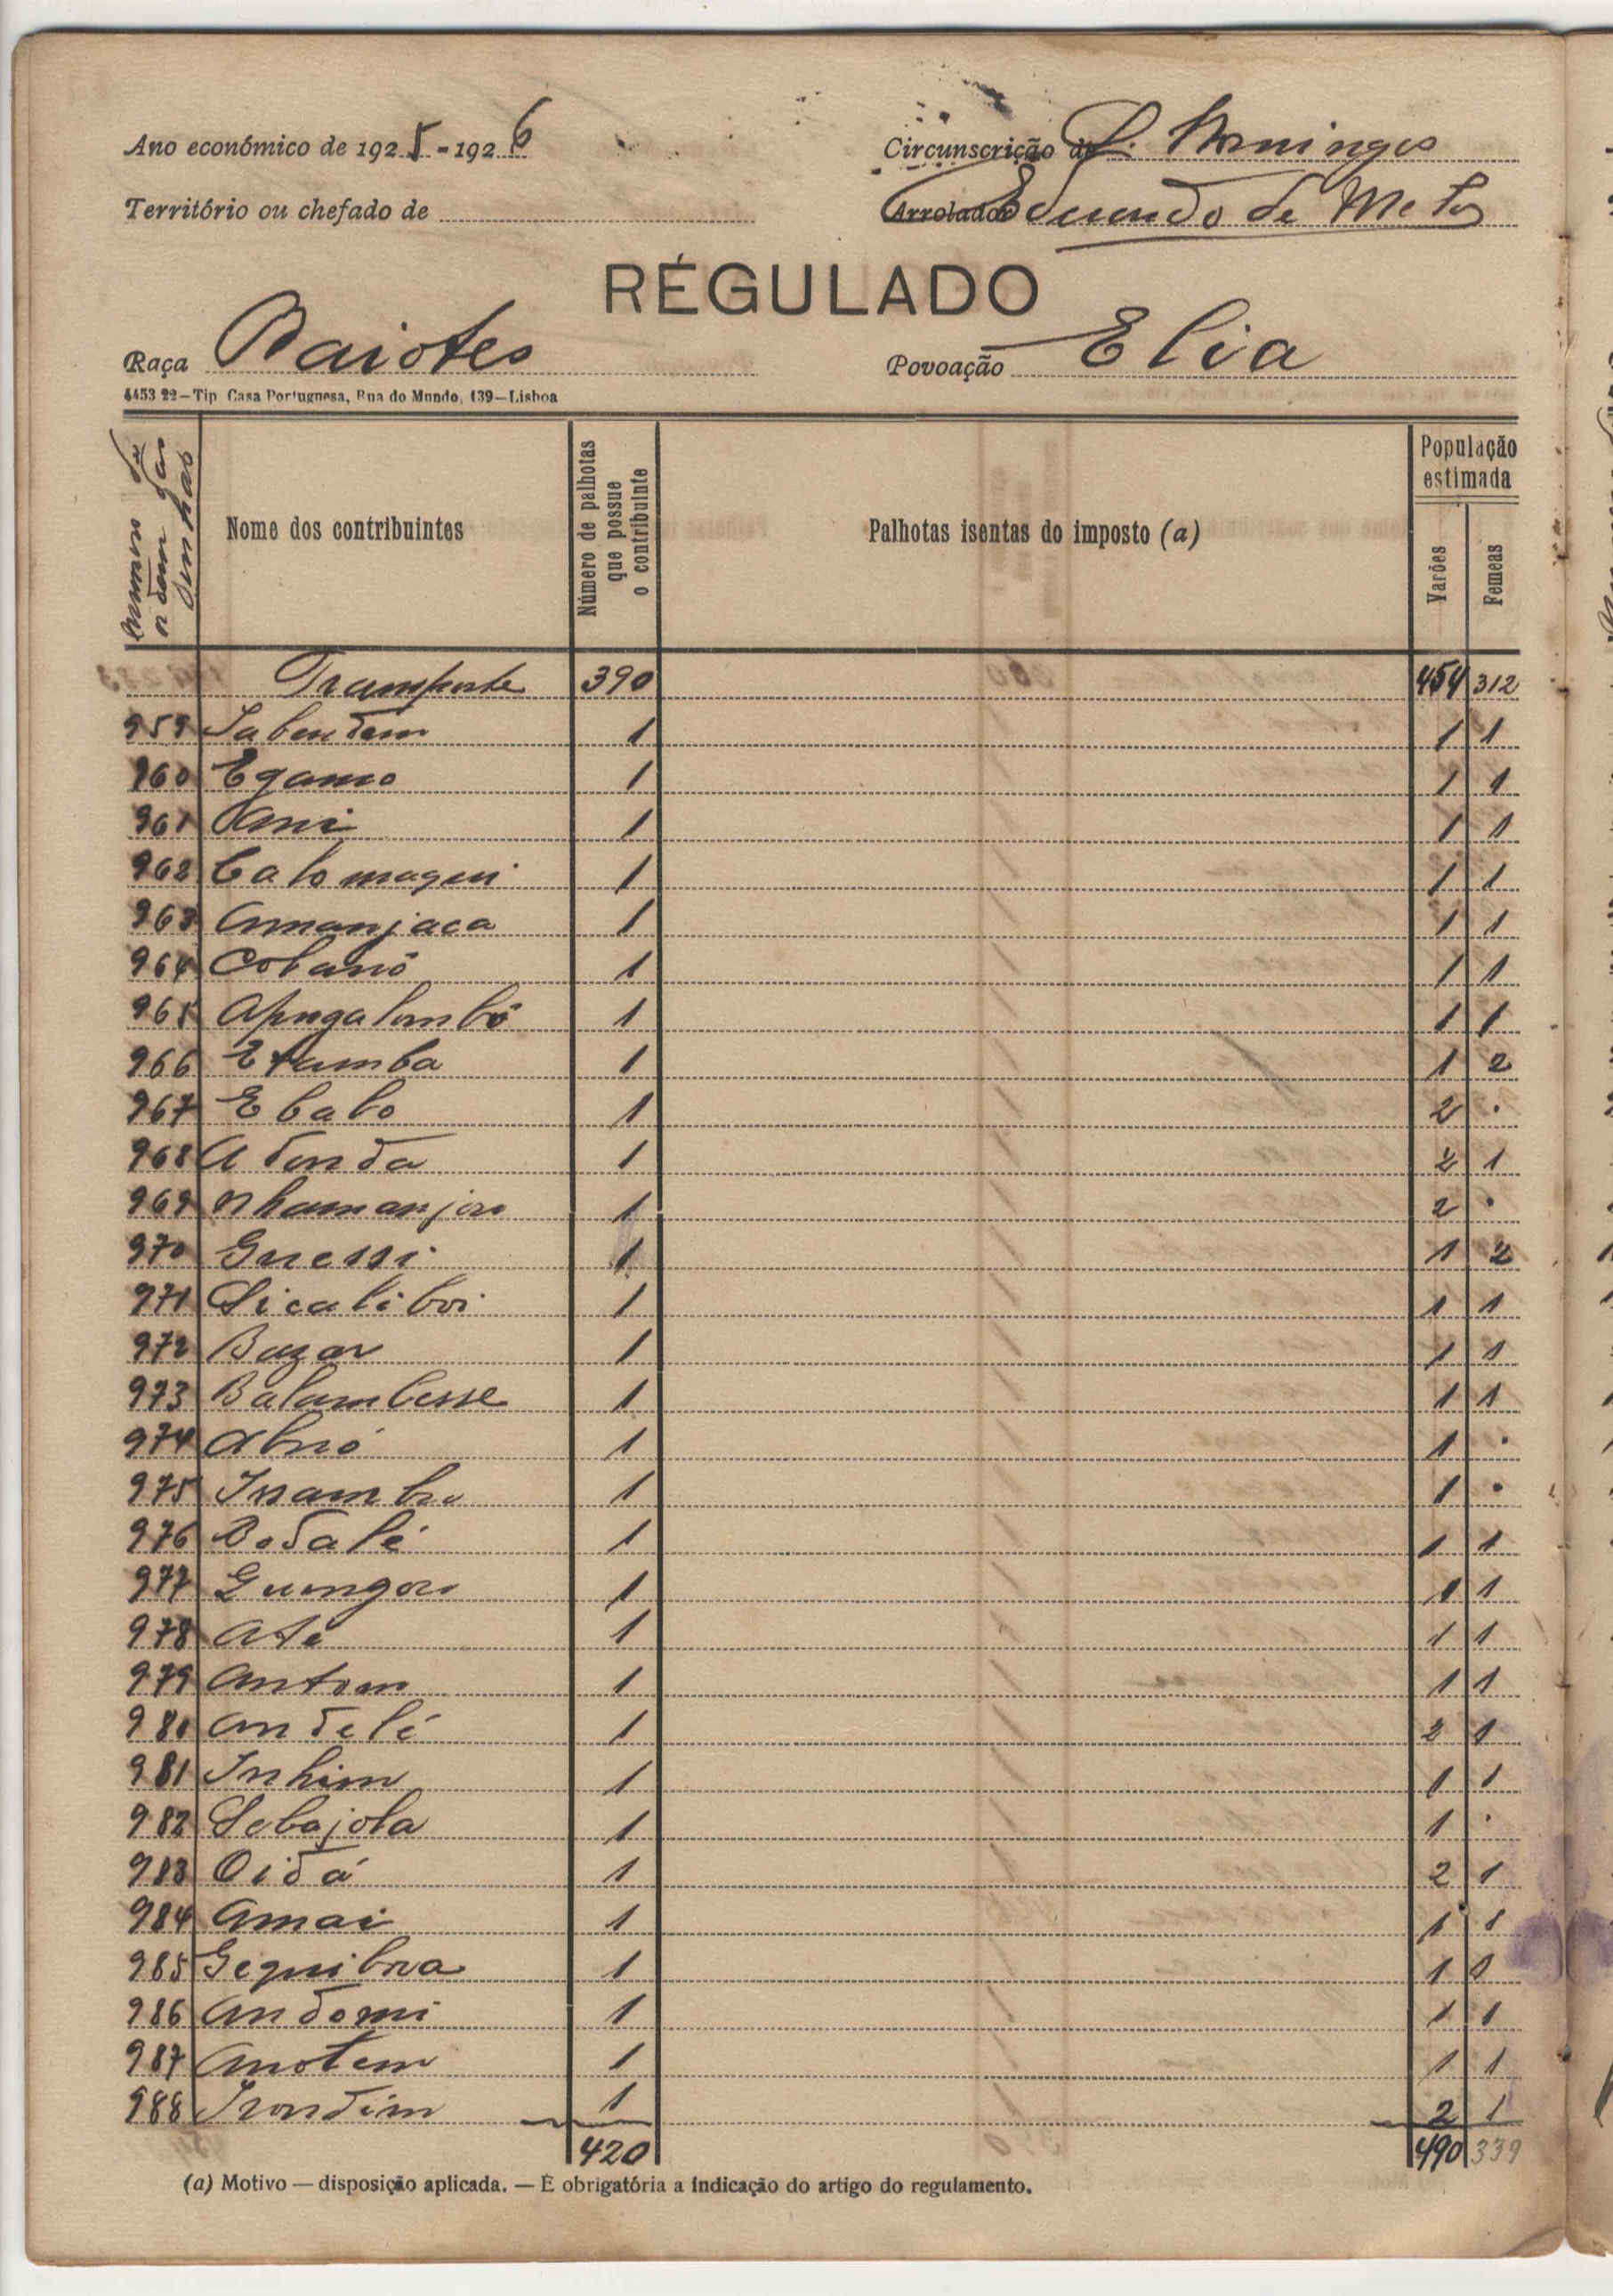 Ano económico de 1925-1926
Circunscrição de S. Domingos
Território ou chefado de
Arrolador Edmundo de Matos
RÉGULADO
Raça Baiotes
Povoação Elia
4453 22—Tip Casa Portuguesa, Rua do Mundo, 139—Lisboa
Numero de ordem das senhas
Nome dos contribuintes
Número de palhotas que possue o contribuinte
Palhotas isentas do imposto (a)
População estimada
Varões
Femeas
Transporte 390 454 312
959 1 1 1
960 Egamo 1 1 1
961 Ani 1 1 1
962 1 1 1
963 Amanjaca 1 1 1
964 Cobanó 1 1 1
965 1 1 1
966 1 1 2
967 Ebabo 1 2 .
968 1 2 1
969 Nhamanjou 1 2 .
970 Guessi 1 1 2
971 Sicaliboi 1 1 1
972 Bazar 1 1 1
973 Balambesse 1 1 1
974 1 1 .
975 1 1 .
976 Bodalé 1 1 1
977 1 1 1
978 Até 1 1 1
979 Antom 1 1 1
980 Andelé 1 2 1
981 Inhim 1 1 1
982 Sebajola 1 1 .
983 Oidá 1 2 1
984 Amai 1 1 1
985 1 1 1
986 Andomi 1 1 1
987 Anotem 1 1 1
988 1 2 1
420 490 339
(a) Motivo — disposição aplicada. — É obrigatória a indicação do artigo do regulamento.